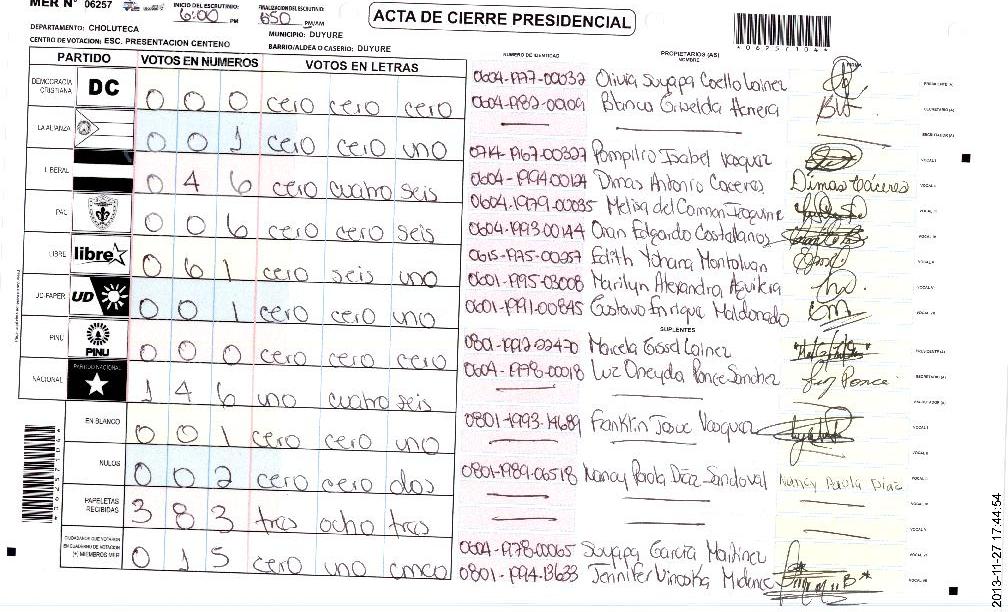 MER N° 06257 INICIO DEL ESCRUTINIO: 6:00 PM FINALIZACION DEL ESCRUTINIO: 650 PM/AM
ACTA DE CIERRE PRESIDENCIAL
DEPARTAMENTO: CHOLUTECA MUNICIPIO: DUYURE
CENTRO DE VOTACION: ESC. PRESENTACION CENTENO BARRIO/ALDEA O CASERIO: DUYURE
PARTIDO VOTOS EN NUMEROS VOTOS EN LETRAS
DEMOCRACIA CRISTIANA DC 0 0 0 cero cero cero
LA ALIANZA 0 0 1 cero cero uno
LIBERAL 0 4 6 cero cuatro seis
PAC 0 0 6 cero cero seis
LIBRE libre 0 6 1 cero seis uno
UD-FAPER UD 0 0 1 cero cero uno
PINU PINU 0 0 0 cero cero cero
NACIONAL PARTIDO NACIONAL 1 4 6 uno cuatro seis
EN BLANCO 0 0 1 cero cero uno
NULOS 0 0 2 cero cero dos
PAPELETAS RECIBIDAS 3 8 3 tres ocho tres
CIUDADANOS QUE VOTARON EN CUADERNO DE VOTACION (+) MIEMBROS MER 0 1 5 cero uno cinco
NUMERO DE IDENTIDAD PROPIETARIOS (AS) NOMBRE FIRMA
0604-1977-00032 Olivia Suyapa Coello Lainez PRESIDENTE (A)
0604-1982-00109 Blanca Griselda Herrera BH SECRETARIO (A)
ESCRUTADOR (A)
0714-1967-00327 Pompilio Isabel Vasquez VOCAL I
0604-1994-00124 Dimas Antonio Caceres Dimas Cáceres VOCAL II
0604-1979-00035 Melisa del Carmen VOCAL III
0604-1993-00144 Oran Edgardo Costellanos VOCAL IV
0615-1975-00057 Edith Yohana Montoluan VOCAL V
0601-1995-03008 Marilyn Alexandra Aguilera VOCAL VI
0601-1991-00845 Gustavo Enrique Maldonado VOCAL VII
SUPLENTES
Marcela Gissel Lainez PRESIDENTE (A)
0604-1978-00018 Luz Oneyda Ponce Sanchez Luz Ponce SECRETARIO (A)
ESCRUTADOR (A)
0801-1993-14689 Franklin Josue Vasquez VOCAL I
VOCAL II
0801-1989-06518 Nancy Paola Díaz Sandoval Nancy Paola Diaz VOCAL III
VOCAL IV
VOCAL V
0604-1978-00065 Suyapa Garcia Martinez VOCAL VI
0801-1994-13633 Jennifer VOCAL VII
2013-11-27 17:44:54